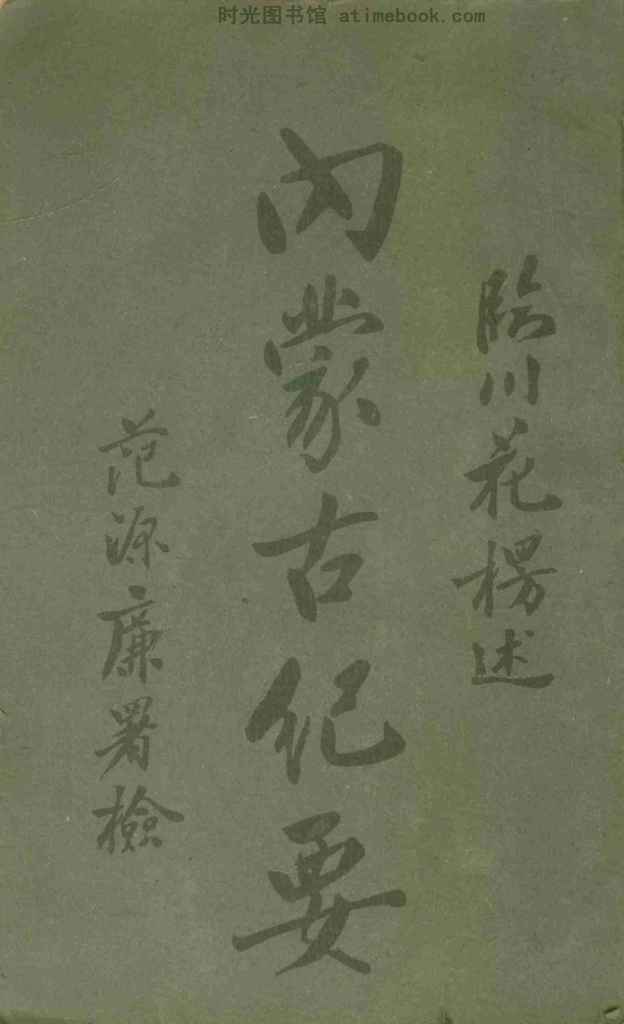 时光图书馆 atimebook.com
臨川花楞述
内蒙古纪要
范源廉署檢